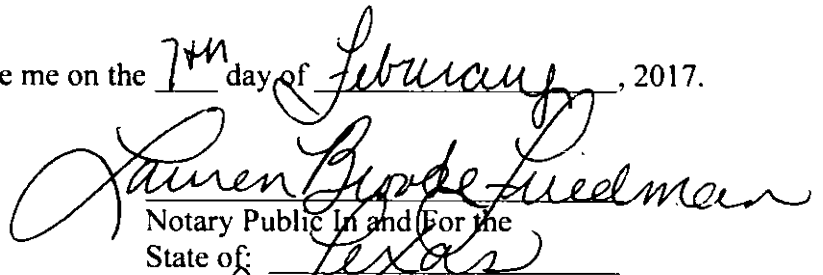 e me on the 7th day of February, 2017.
Lauren Brooke Friedman
Notary Public In and For the
State of: Texas